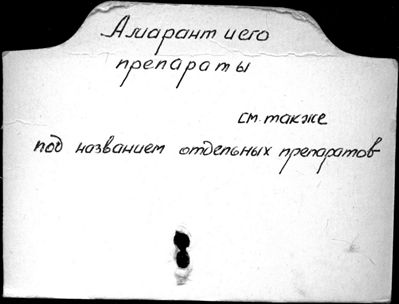 Амарант и его
препараты
см. также
под названием отдельных препаратов